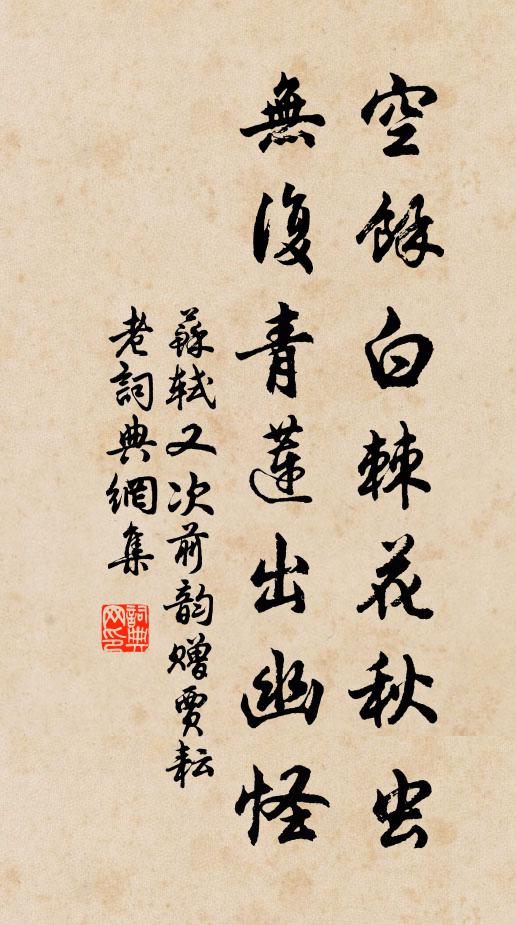 空餘白棘花秋虫
無復青蓮出幽怪
蘇軾又次前韵贈賈耘
老詞典網集
詞典網印